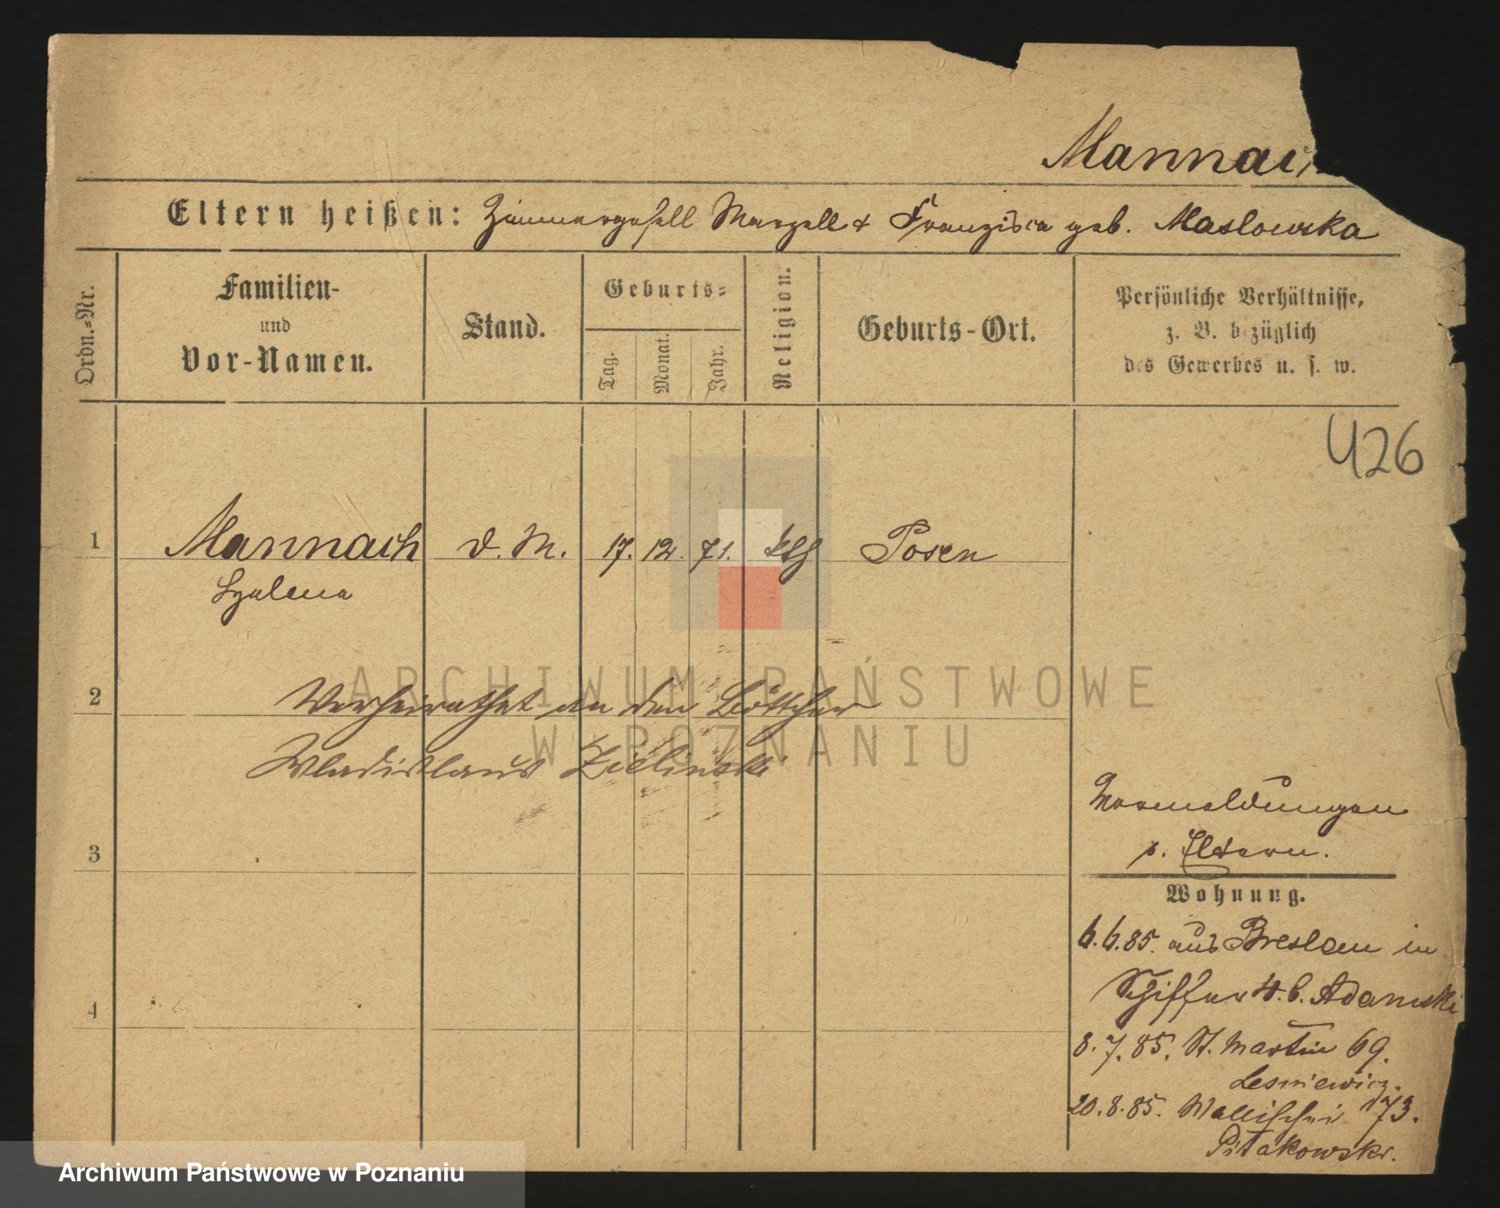 Mannach
Eltern heißen: Zimmergesell Marzell & Franziska geb. Maslowska
Ordn.=Nr.
Familien-
und
Vor-Namen.
Stand.
Geburts=
Tag.
Monat.
Jahr.
Religion.
Geburts-Ort.
Persönliche Verhältnisse,
z. B. bezüglich
des Gewerbes u. s. w.
426
1 Mannach d. M. 17. 12. 71. ktlh Posen
Helena
2 Verheirathet an den Böttcher
Wladislaus Zielinski
3
Vormeldungen
s. Eltern.
Wohnung.
6.6.85. aus Breslau in
Schiffer 4. b. Adamski
4
8.7.85. St. Martin 69.
Lesniewicz.
20.8.85. Wallischei 73.
Pitakowski.
ARCHIWUM PAŃSTWOWE
W POZNANIU
Archiwum Państwowe w Poznaniu